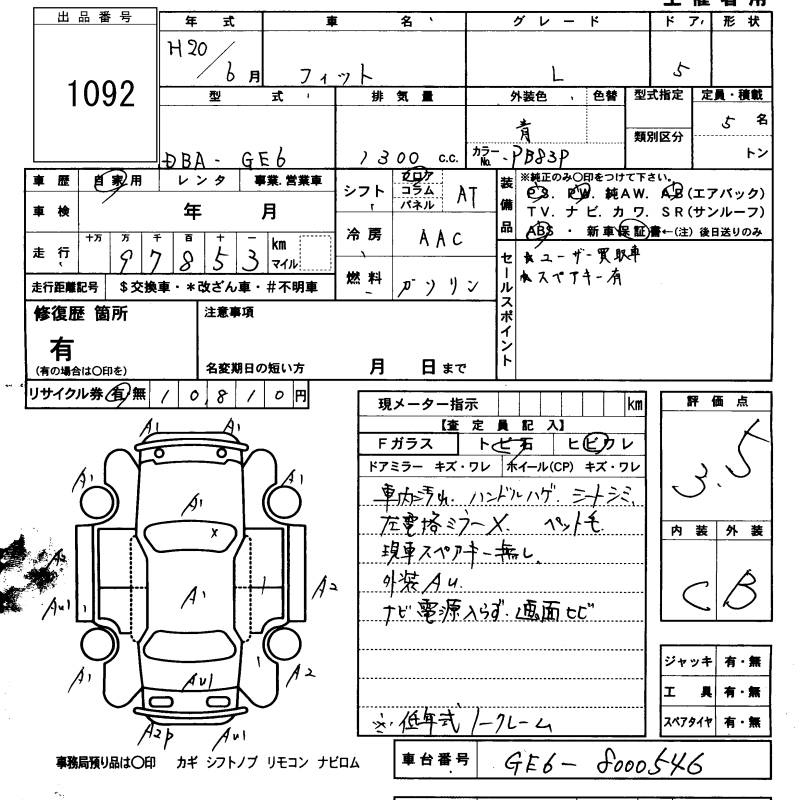 出品番号
1092
年式 車名 グレード ドア 形状
H20/6月 フィット L 5
型式 排気量 外装色 色替 型式指定 定員・積載
DBA-GE6 1300 c.c. 青 カラーNo. PB83P 類別区分 5名
トン
車歴 自家用 レンタ 事業.営業車
シフト フロア コラム パネル AT
装備品
※純正のみ○印をつけて下さい。
PS. PW. 純AW. AB(エアバック)
TV. ナビ. カワ. SR(サンルーフ)
ABS ・ 新車保証書←(注) 後日送りのみ
車検 年 月
冷房 AAC
走行 十万 万 千 百 十 一 km マイル
97853
燃料 ガソリン
走行距離記号 $交換車・*改ざん車・#不明車
セールスポイント
★ユーザー買取車
★スペアキー有
修復歴 箇所
有
(有の場合は○印を)
注意事項
名変期日の短い方 月 日まで
リサイクル券 有・無 10,810円
現メーター指示 km
【査定員記入】
Fガラス トビ石 ヒビワレ
ドアミラー キズ・ワレ ホイール(CP) キズ・ワレ
車内汚れ. ハンドルハゲ. シートシミ.
左電格ミラーX. ペット毛.
現車スペアキー無し.
外装AU.
ナビ電源入らず. 画面ヒビ
※低年式ノークレーム
評価点
3.5
内装 外装
C B
ジャッキ 有・無
工具 有・無
スペアタイヤ 有・無
A1 A1
A1 A1
A1
X
A2
AU1
A1
A2
A1
A2
AU1
A2P AU1
事務局預り品は○印 カギ シフトノブ リモコン ナビロム
車台番号 GE6-8000546